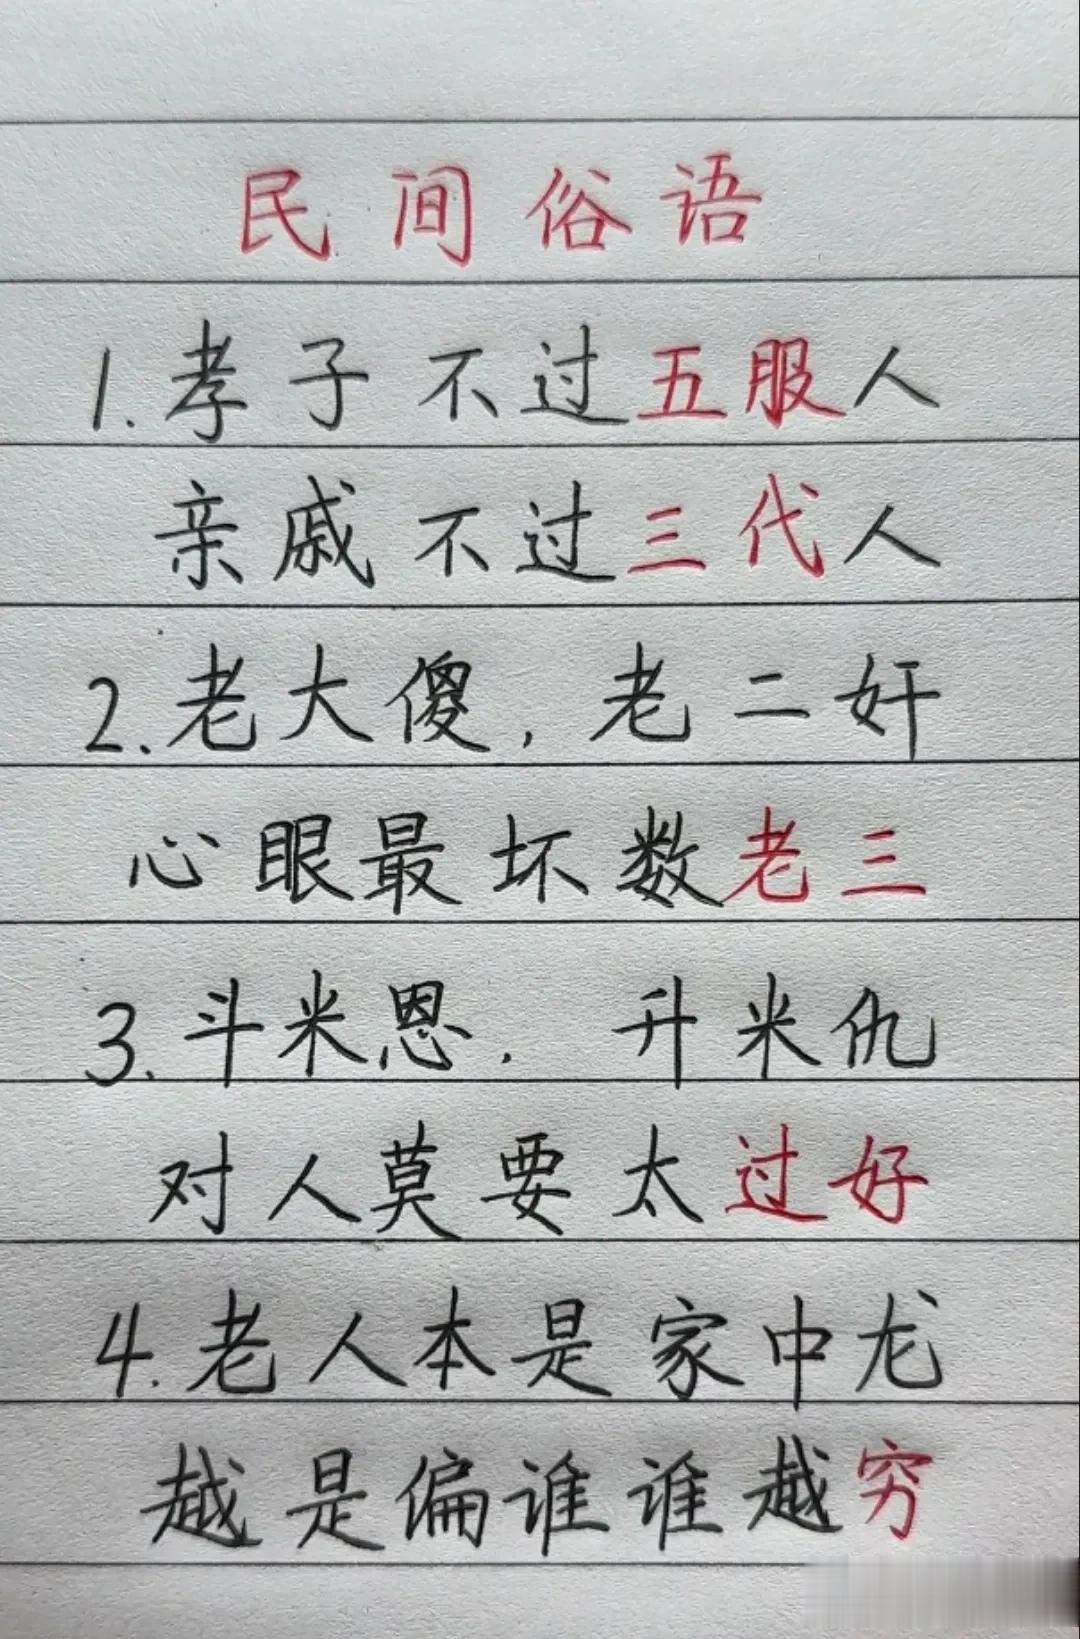 民间俗语
1.孝子不过五服人
亲戚不过三代人
2.老大傻,老二奸
心眼最坏数老三
3.斗米恩.升米仇
对人莫要太过好
4.老人本是家中龙
越是偏谁谁越穷